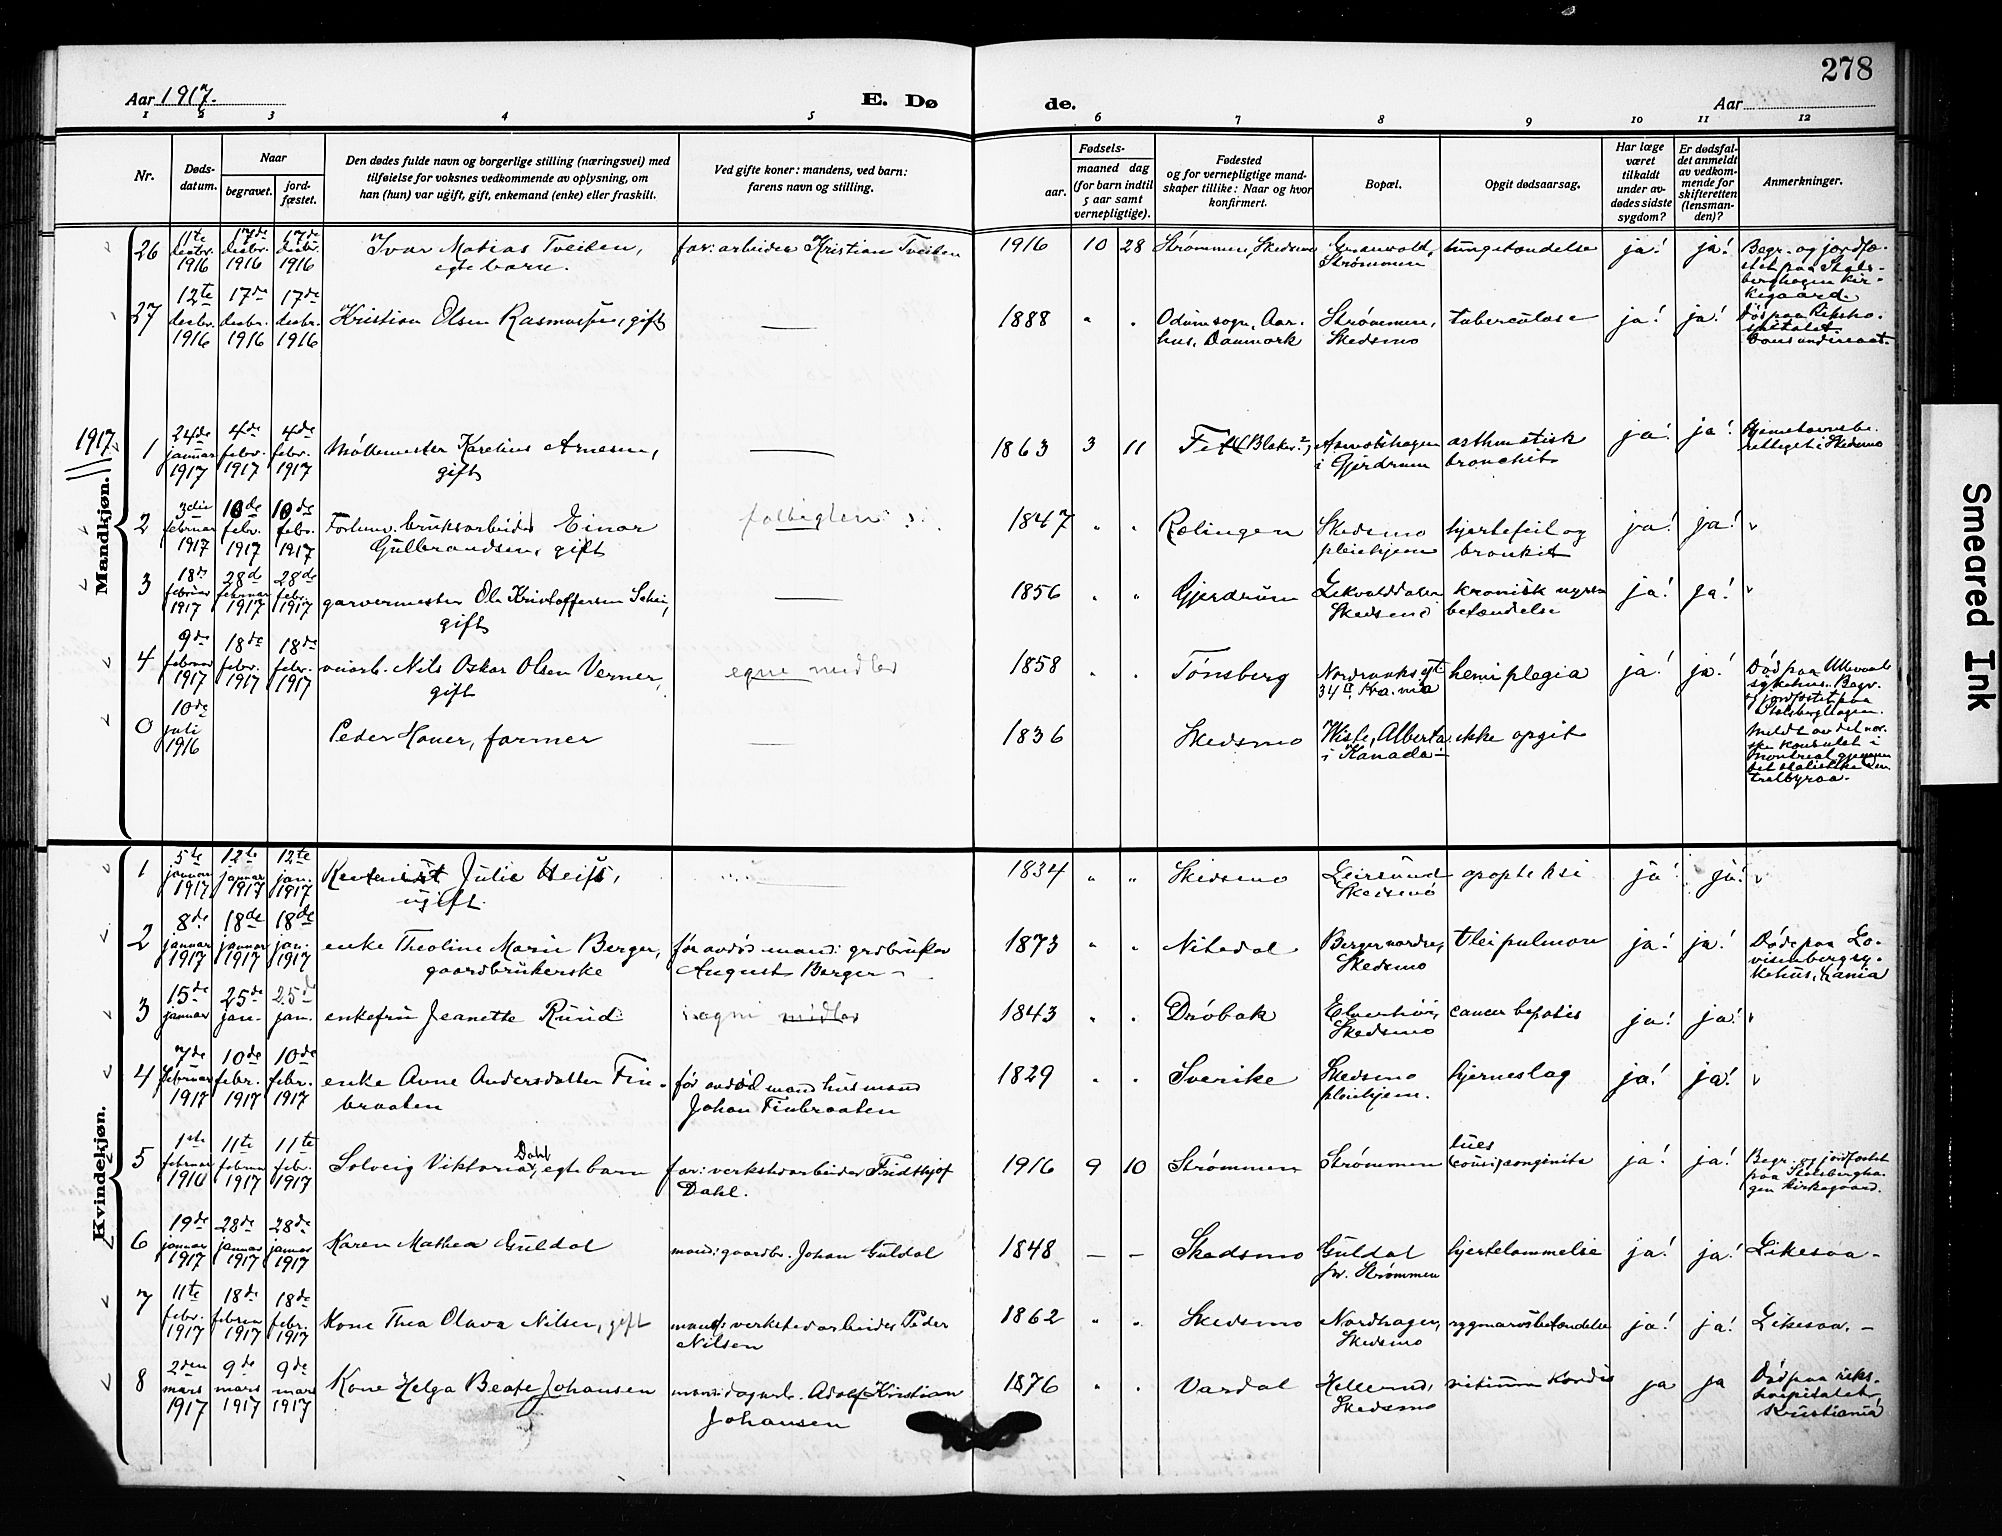 278
Aar 1917.
E. Dø
de.
Aar
1 2 3 4 5 6 7 8 9 10 11 12
Nr.
Døds-
datum.
Naar
begravet.
jord-
fæstet.
Den dødes fulde navn og borgerlige stilling (næringsvei) med
tilføielse for voksnes vedkommende av oplysning, om
han (hun) var ugift, gift, enkemand (enke) eller fraskilt.
Ved gifte koner: mandens, ved barn:
farens navn og stilling.
Fødsels-
aar.
maaned dag
(for barn indtil
5 aar samt
vernepligtige).
Fødested
og for vernepligtige mand-
skaper tillike: Naar og hvor
konfirmert.
Bopæl.
Opgit dødsaarsag.
Har læge
været
tilkaldt
under av-
dødes sidste
sygdom?
Er dødsfal-
det anmeldt
av vedkom-
mende for
skifteretten
(lensman-
den)?
Anmerkninger.
Mandkjøn.
26 11te desbr. 1916 17de desbr. 1916 17de desbr. 1916 Ivar Matias Tveiten, far: arbeider Kristian Tveiten 1916 10 28 Strømmen, Skedsmo Grünwold, lungetændelse ja! ja! Begr. og jordfæ-
egte barn. Strømmen stet paa Stals-
berghagen kir-
kegaard.
27 12te desbr. 1916 17de desbr. 1916 17de desbr. 1916 Kristian Olsen Rasmussen, gift — 1888 " " Odum sogn, Aar- Strømmen, tuberculose ja! ja! Død paa Riksho-
hus, Danmark Skedsmo spitalet.
1917
1 24de januar 1917 4de febr. 1917 4de febr. 1917 Møllemester Karelius Arnesen, — 1863 3 11 Fet (Blaker?) Asmotshagen asthmatisk ja! ja! Hjemstavnsbe-
gift i Gjerdrum bronchit rettiget i Skedsmo
2 3die februar 1917 10de febr. 1917 10de febr. 1917 Forhenv. bruksarbeider Einar 1847 " " Rælingen Skedsmo hjertefeil og ja! ja! "
Gulbrandsen, gift pleiehjem bronkit
3 18de februar 1917 28de februar 1917 28de febr. 1917 garvermester Ole Kristoffersen — 1856 " " Gjerdrum Skedsmo kronisk nyre- ja! ja! "
gift betændelse
4 9de februar 1917 18de febr. 1917 18de febr. 1917 veiarb. Nils Oskar Olsen Verner, egne midler 1858 " " Tønsberg hemiplegia ja! ja! Død paa Ullevaal
gift 34 Kra.nia sykehus. Begr.
og jordfæstet paa
Stalsberghagen.
0 10de juli 1916 Peder Hauer, farmer — 1836 Skedsmo Wiste, Alberta ikke opgit Meldt av det nor-
i Kanada ske konsulat i
Montreal gjennem
det statistiske cen-
tralbyraa.
Kvindekjøn.
1 5te januar 1917 12te januar 1917 12te jan. 1917 Rentenist Julie Heiss, 1834 " " Skedsmo Leirsund apopleksi ja! ja! "
ugift. Skedsmo
2 8de januar 1917 18de januar 1917 18de jan. 1917 enke Theoline Marie Berger, før avdøs mand: grdbruker 1873 " " Nitedal Berger nordre, ja! ja! Døde paa Lo-
gaardbrukerske August Berger Skedsmo visenbergsy-
kehus, Kania
3 15de januar 25de jan. 25de jan. enkefru Jeanette Ruud egne midler 1843 " " Drøbak Elverhöi, cancer hepatis ja! ja! "
Skedsmo
4 7de februar 1917 10de febr. 1917 10de febr. 1917 enke Anne Andersdatter Fin- før avdød mand husmand 1829 " " Sverike Skedsmo hjerneslag ja! ja! "
braaten Johan Finbraaten pleiehjem.
5 1ste februar 11te februar 1917 11te febr. 1917 Solveig Viktoria Dahl, egte barn far: verkstedarbeider Fridthjof 1916 9 10 Strømmen Strømmen lues congenita ja! ja! Begr. og jordfæstet
Dahl. paa Stalsbergha-
gen kirkegaard.
6 19de januar 1917 28de januar 1917 28de januar 1917 Karen Mathea Guldal mand: gaardbr. Johan Guldal 1848 — — Skedsmo Guldal hjertelammelse ja! ja! Likesaa —
pr. Strømmen
7 11te febr. 1917 18de februar 1917 18de febr. 1917 Kone Thea Olava Nilsen, gift mand: verkstedarbeider Peder 1862 " " Skedsmo Nordhagen, rygmarvsbetændelse ja! ja! Likesaa. —
Nilsen Skedsmo
8 2den mars 1917 9de mars 1917 9de mars 1917 Kone Helga Beate Johansen mand: dagarb. Adolf Kristian 1876 " " Vardal Hellerud, vitium kordis ja ja Død paa riks-
Johansen Skedsmo hospitalet,
Kristiania
Smeared Ink